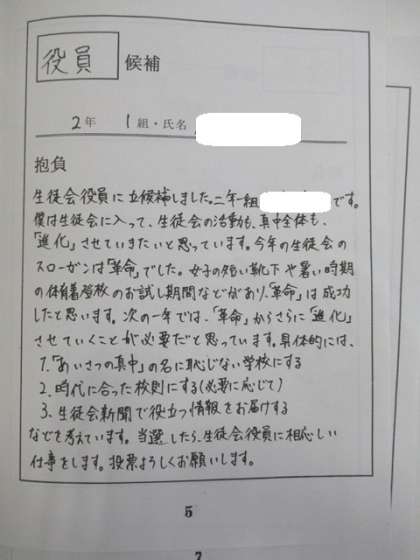 役員 候補
2年 1組・氏名
抱負
生徒会役員に立候補しました。二年一組 です。
僕は生徒会に入って、生徒会の活動も、真中全体も、
「進化」させていきたいと思っています。今年の生徒会の
スローガンは「革命」でした。女子の短い靴下や暑い時期
の体育着登校のお試し期間などがあり、「革命」は成功
したと思います。次の一年では、「革命」からさらに「進化」
させていくことが必要だと思っています。具体的には、
1.「あいさつの真中」の名に恥じない学校にする
2. 時代に合った校則にする(必要に応じて)
3. 生徒会新聞で役立つ情報をお届けする
などを考えています。当選したら、生徒会役員に相応しい
仕事をします。投票よろしくお願いします。
5
7